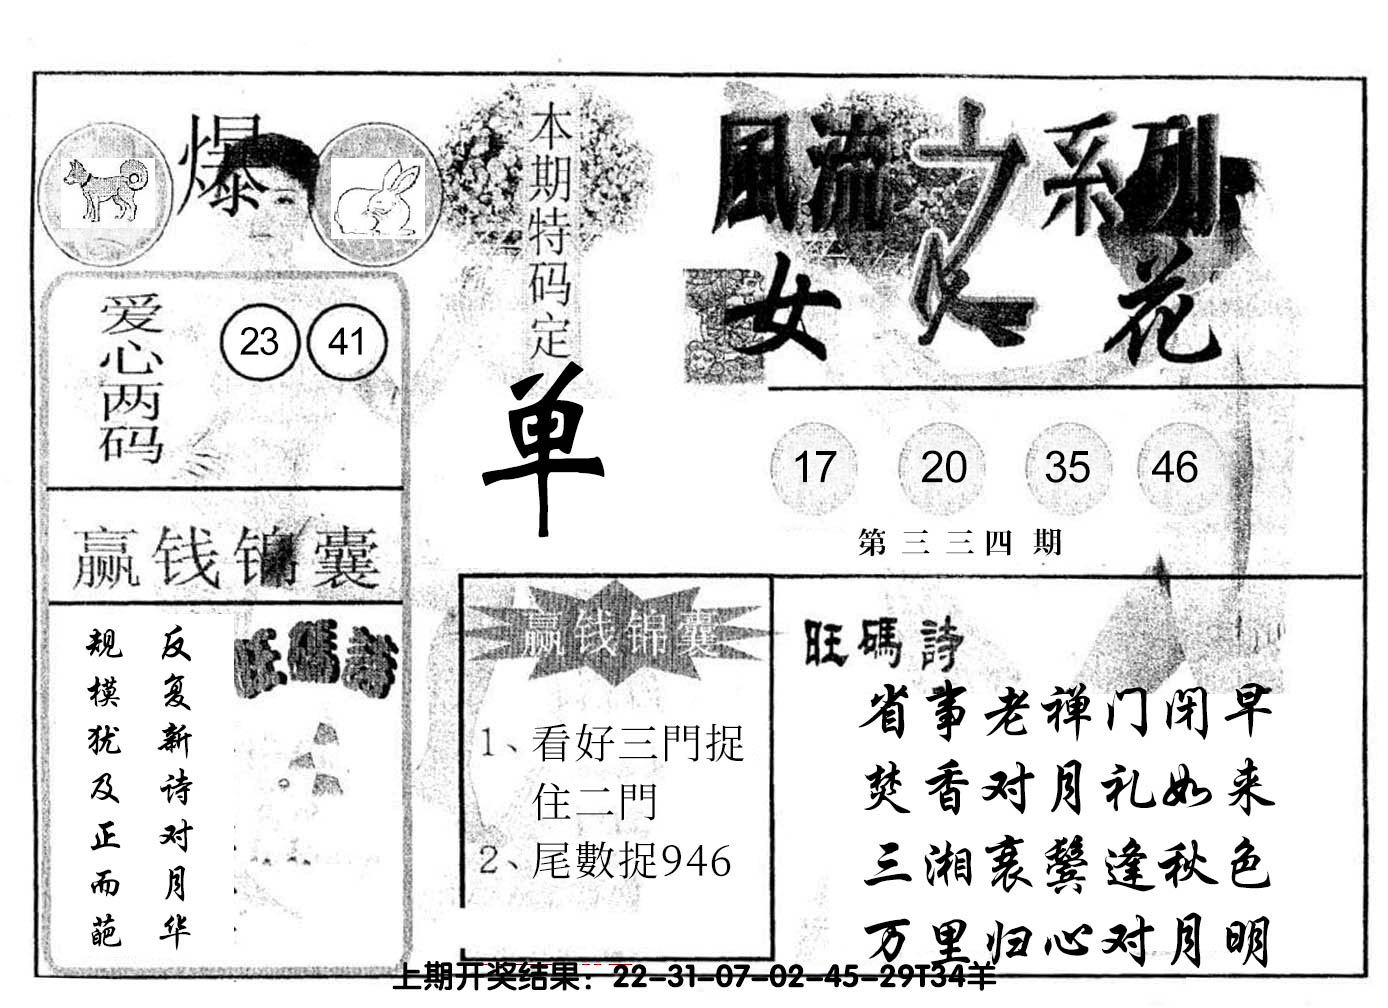 爆
爱心两码
23 41
赢钱锦囊
反复新诗对月华
规模犹及正而葩
旺碼詩
本期特码定
单
風流之系列
女人花
17 20 35 46
第三三四期
赢钱锦囊
1、看好三門捉
住二門
2、尾數捉946
旺碼詩
省事老禅门闭早
焚香对月礼如来
三湘衰鬓逢秋色
万里归心对月明
上期开奖结果：22-31-07-02-45-29T34羊